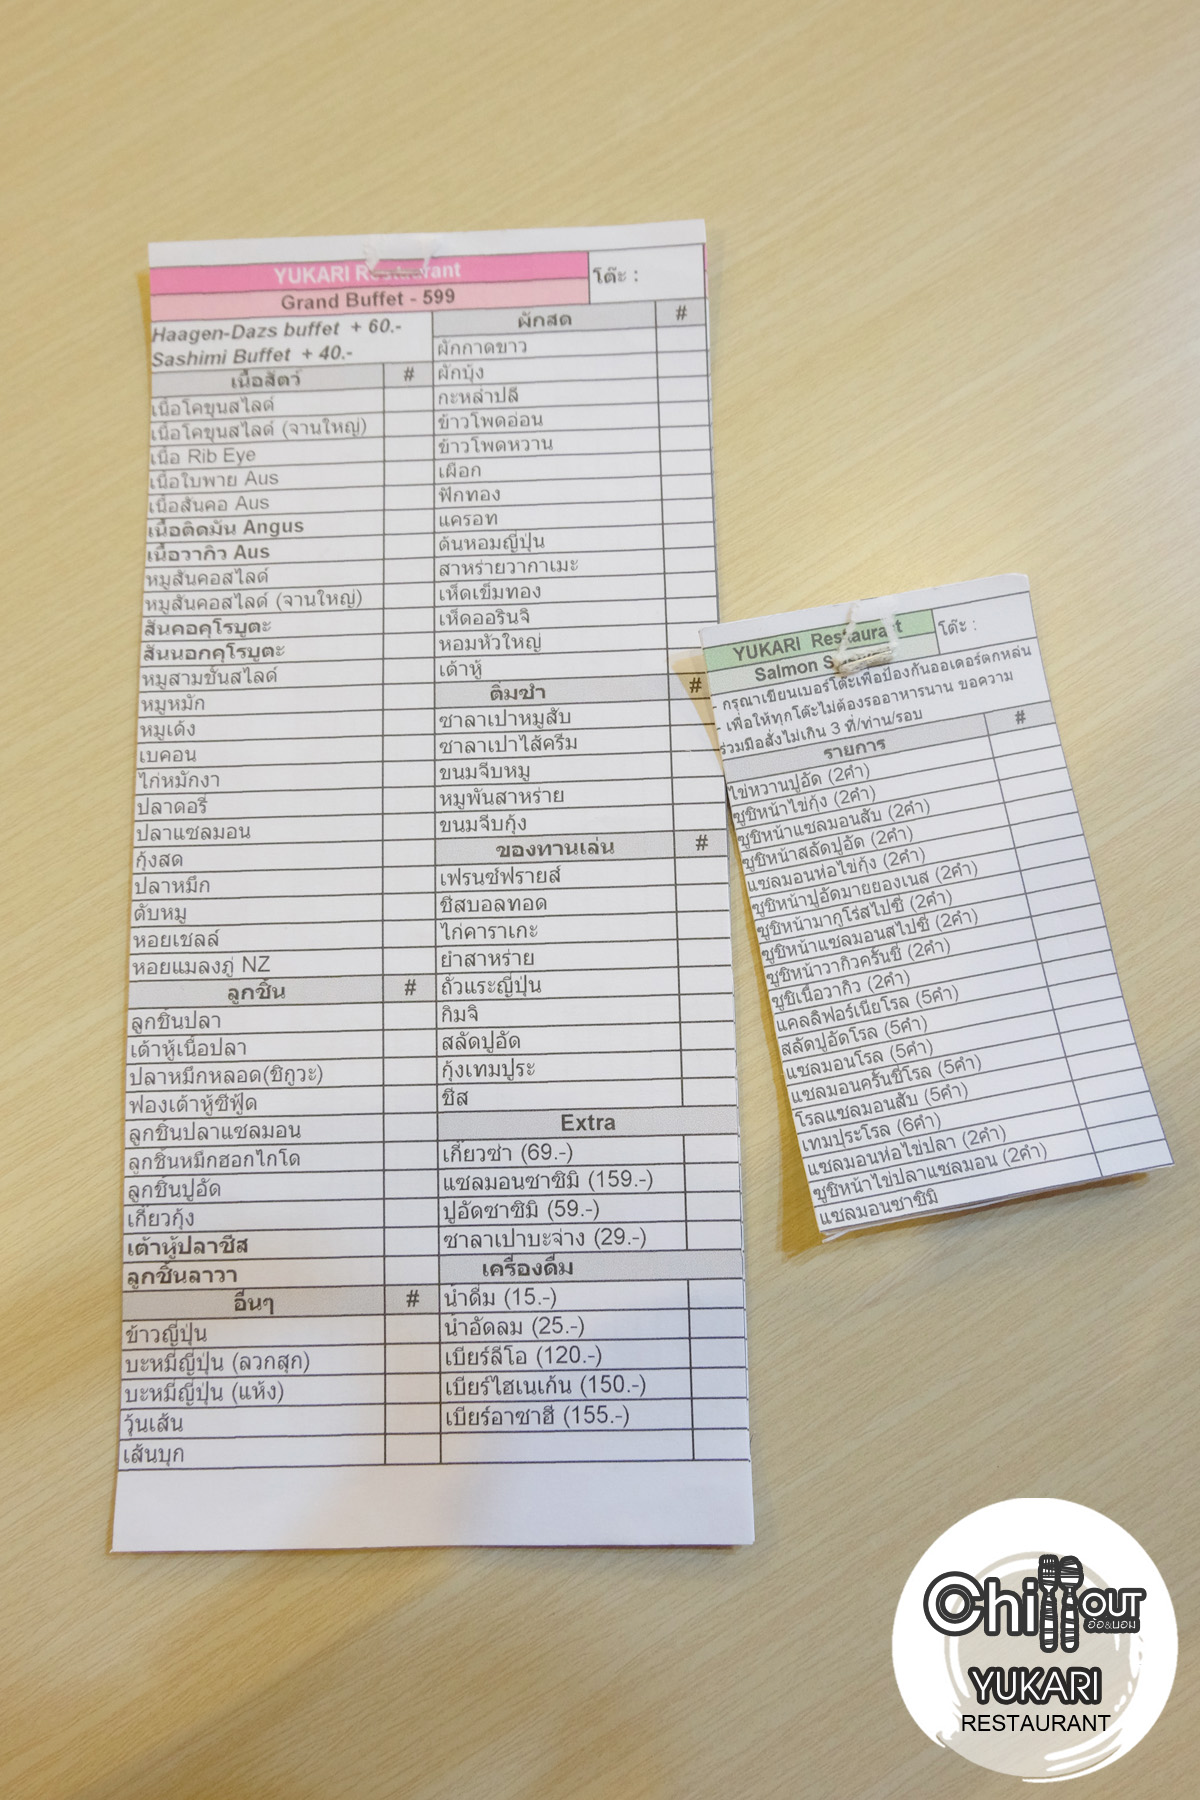 YUKARI Restaurant
Grand Buffet - 599
โต๊ะ :
Haagen-Dazs buffet + 60.-
Sashimi Buffet + 40.-
เนื้อสัตว์ #
เนื้อโคขุนสไลด์
เนื้อโคขุนสไลด์ (จานใหญ่)
เนื้อ Rib Eye
เนื้อใบพาย Aus
เนื้อสันคอ Aus
เนื้อติดมัน Angus
เนื้อวากิว Aus
หมูสันคอสไลด์
หมูสันคอสไลด์ (จานใหญ่)
สันคอคุโรบูตะ
สันนอกคุโรบูตะ
หมูสามชั้นสไลด์
หมูหมัก
หมูเด้ง
เบคอน
ไก่หมักงา
ปลาดอรี่
ปลาแซลมอน
กุ้งสด
ปลาหมึก
ตับหมู
หอยเชลล์
หอยแมลงภู่ NZ
ลูกชิ้น #
ลูกชิ้นปลา
เต้าหู้เนื้อปลา
ปลาหมึกหลอด(ชิกูวะ)
ฟองเต้าหู้ซีฟู้ด
ลูกชิ้นปลาแซลมอน
ลูกชิ้นหมึกฮอกไกโด
ลูกชิ้นปูอัด
เกี๊ยวกุ้ง
เต้าหู้ปลาชีส
ลูกชิ้นลาวา
อื่นๆ #
ข้าวญี่ปุ่น
บะหมี่ญี่ปุ่น (ลวกสุก)
บะหมี่ญี่ปุ่น (แห้ง)
วุ้นเส้น
เส้นบุก
ผักสด #
ผักกาดขาว
ผักบุ้ง
กะหล่ำปลี
ข้าวโพดอ่อน
ข้าวโพดหวาน
เผือก
ฟักทอง
แครอท
ต้นหอมญี่ปุ่น
สาหร่ายวากาเมะ
เห็ดเข็มทอง
เห็ดออรินจิ
หอมหัวใหญ่
เต้าหู้
ติ่มซำ #
ซาลาเปาหมูสับ
ซาลาเปาไส้ครีม
ขนมจีบหมู
หมูพันสาหร่าย
ขนมจีบกุ้ง
ของทานเล่น #
เฟรนซ์ฟรายส์
ชีสบอลทอด
ไก่คาราเกะ
ยำสาหร่าย
ถั่วแระญี่ปุ่น
กิมจิ
สลัดปูอัด
กุ้งเทมปุระ
ชีส
Extra
เกี๊ยวซ่า (69.-)
แซลมอนซาชิมิ (159.-)
ปูอัดซาชิมิ (59.-)
ซาลาเปาบะจ่าง (29.-)
เครื่องดื่ม
น้ำดื่ม (15.-)
น้ำอัดลม (25.-)
เบียร์ลีโอ (120.-)
เบียร์ไฮเนเก้น (150.-)
เบียร์อาซาฮี (155.-)
YUKARI Restaurant
Salmon
โต๊ะ :
- กรุณาเขียนเบอร์โต๊ะเพื่อป้องกันออเดอร์ตกหล่น
- เพื่อให้ทุกโต๊ะไม่ต้องรออาหารนาน ขอความ
ร่วมมือสั่งไม่เกิน 3 ที่/ท่าน/รอบ
รายการ #
ไข่หวานปูอัด (2คำ)
ซูชิหน้าไข่กุ้ง (2คำ)
ซูชิหน้าแซลมอนสับ (2คำ)
ซูชิหน้าสลัดปูอัด (2คำ)
แซลมอนห่อไข่กุ้ง (2คำ)
ซูชิหน้าปูอัดมายยองเนส (2คำ)
ซูชิหน้ามากุโร่สไปซี่ (2คำ)
ซูชิหน้าแซลมอนสไปซี่ (2คำ)
ซูชิหน้าวากิวครั้นชี่ (2คำ)
ซูชิเนื้อวากิว (2คำ)
แคลลิฟอร์เนียโรล (5คำ)
สลัดปูอัดโรล (5คำ)
แซลมอนโรล (5คำ)
แซลมอนครั้นชี่โรล (5คำ)
โรลแซลมอนสับ (5คำ)
เทมปุระโรล (6คำ)
แซลมอนห่อไข่ปลา (2คำ)
ซูชิหน้าไข่ปลาแซลมอน (2คำ)
แซลมอนซาชิมิ
Chill OUT
อ้อ&นอม
YUKARI
RESTAURANT